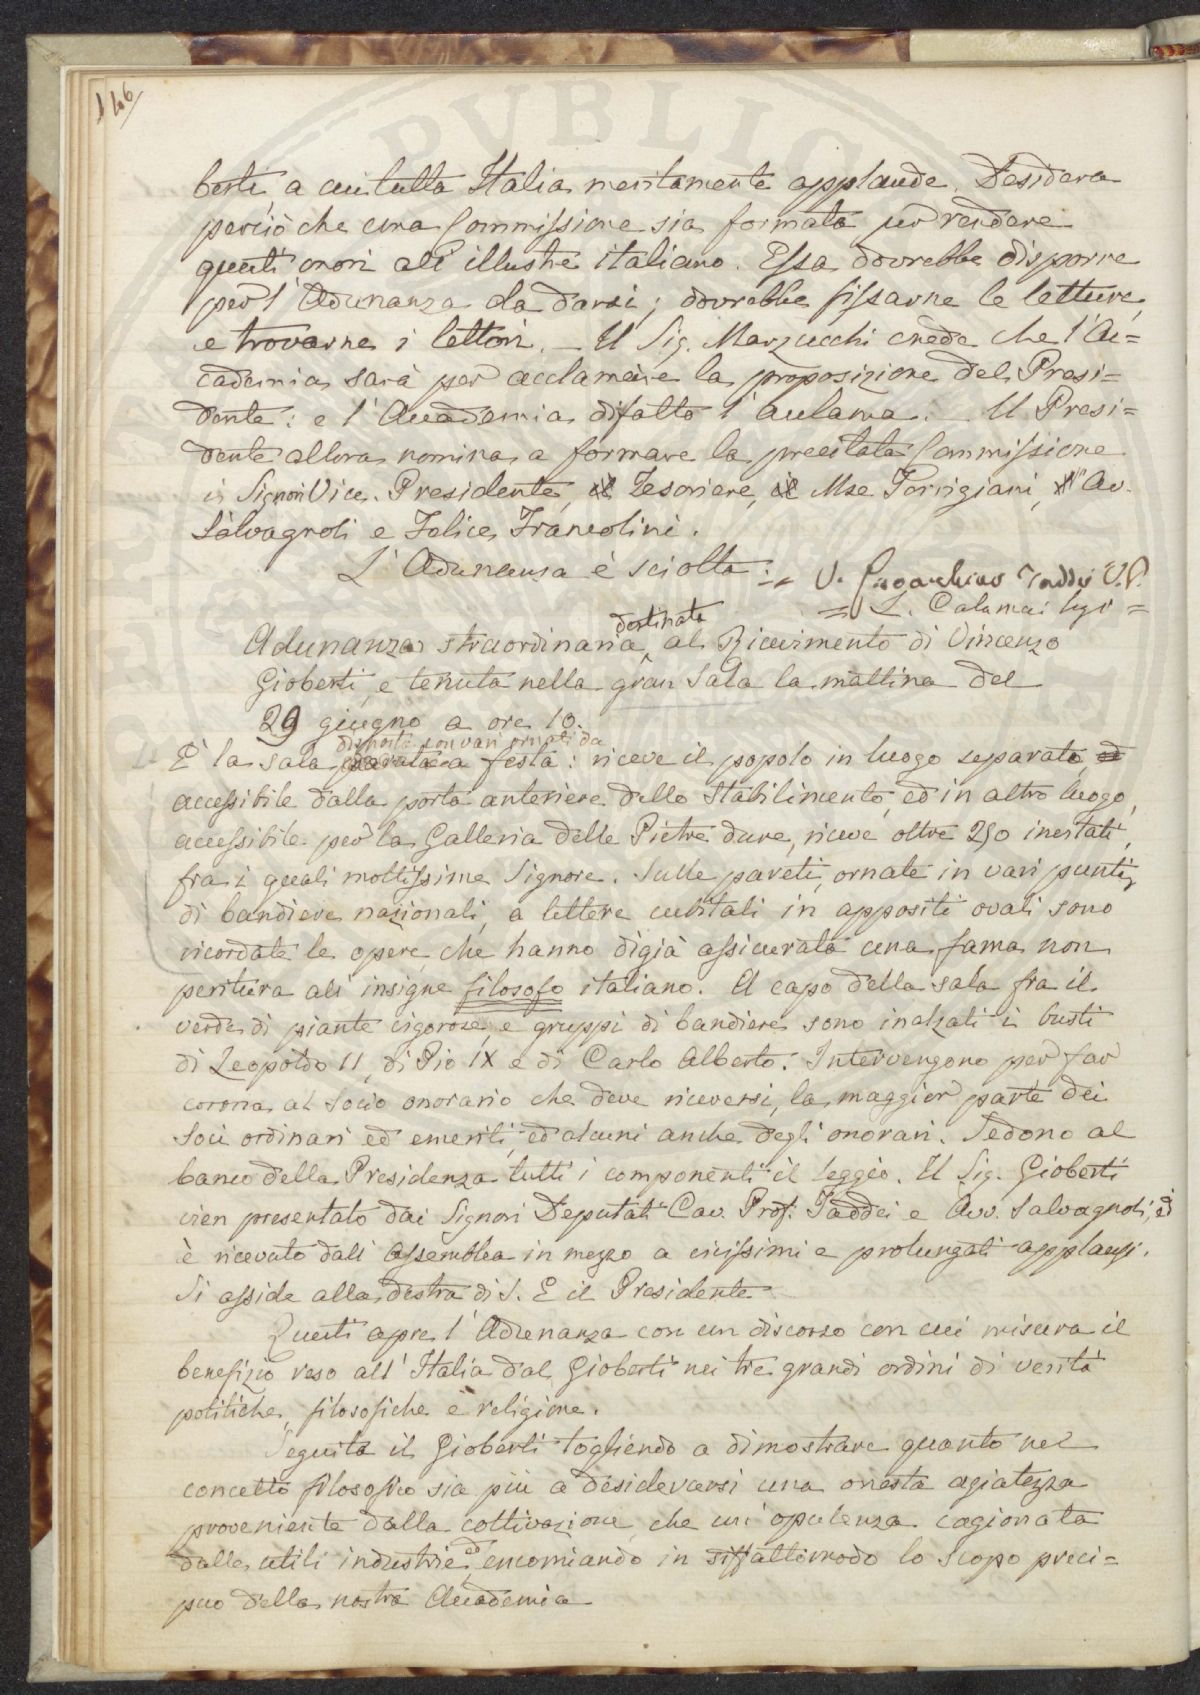 146
berti, a cui tutta Italia meritamente applaude. Desidera
perciò che una Commissione sia formata per rendere
questi onori all'illustre italiano. Essa dovrebbe disporre
per l'Adunanza da darsi; dovrebbe fissarne le letture,
e trovarne i lettori. — Il Sig. Marzucchi crede che l'Ac=
cademia sarà per acclamare la proposizione del Presi=
dente: e l'Accademia difatto l'acclama. — Il Presi=
dente allora nomina a formare la precitata Commissione
i Signori Vice-Presidente, il Tesoriere, il Mse Torrigiani, Av.
Salvagnoli e Felice Francolini.
L'Adunanza è sciolta: =
V. Taddei V.P.
= L. Calamai Segr =
destinata
Adunanza straordinaria, al Ricevimento di Vincenzo
Gioberti, e tenuta nella gran Sala la mattina del
29 giugno a ore 10.
disposta con vari ornati da
È la sala parata a festa: riceve il popolo in luogo separato, ed
accessibile dalla porta anteriore dello Stabilimento, ed in altro luogo,
accessibile per la Galleria delle Pietre dure, riceve oltre 250 invitati,
fra i quali moltissime Signore. Sulle pareti, ornate in vari punti
di bandiere nazionali, a lettere cubitali in appositi ovali sono
ricordate le opere, che hanno digià assicurata una fama non
peritura all'insigne filosofo italiano. A capo della sala fra il
verde di piante vigorose, e gruppi di bandiere sono inalzati i busti
di Leopoldo II, di Pio IX e di Carlo Alberto. Intervengono per far
corona al Socio onorario che deve riceversi, la maggior parte dei
Soci ordinari ed emeriti, ed alcuni anche degli onorari. Sedono al
banco della Presidenza tutti i componenti il seggio. Il Sig. Gioberti
vien presentato dai Signori Deputati Cav. Prof. Taddei e Avv. Salvagnoli, ed
è ricevuto dall'Assemblea in mezzo a vivissimi e prolungati applausi.
Si asside alla destra di S. E il Presidente
Questi apre l'Adunanza con un discorso con cui misura il
benefizio reso all'Italia dal Gioberti nei tre grandi ordini di verità
politiche, filosofiche e religione.
Seguita il Gioberti togliendo a dimostrare quanto nel
concetto filosofico sia più a desiderarsi una onesta agiatezza
proveniente dalla coltivazione, che un'opulenza cagionata
ed
dalle utili industrie, encomiando in siffatto modo lo scopo preci=
puo della nostra Accademia